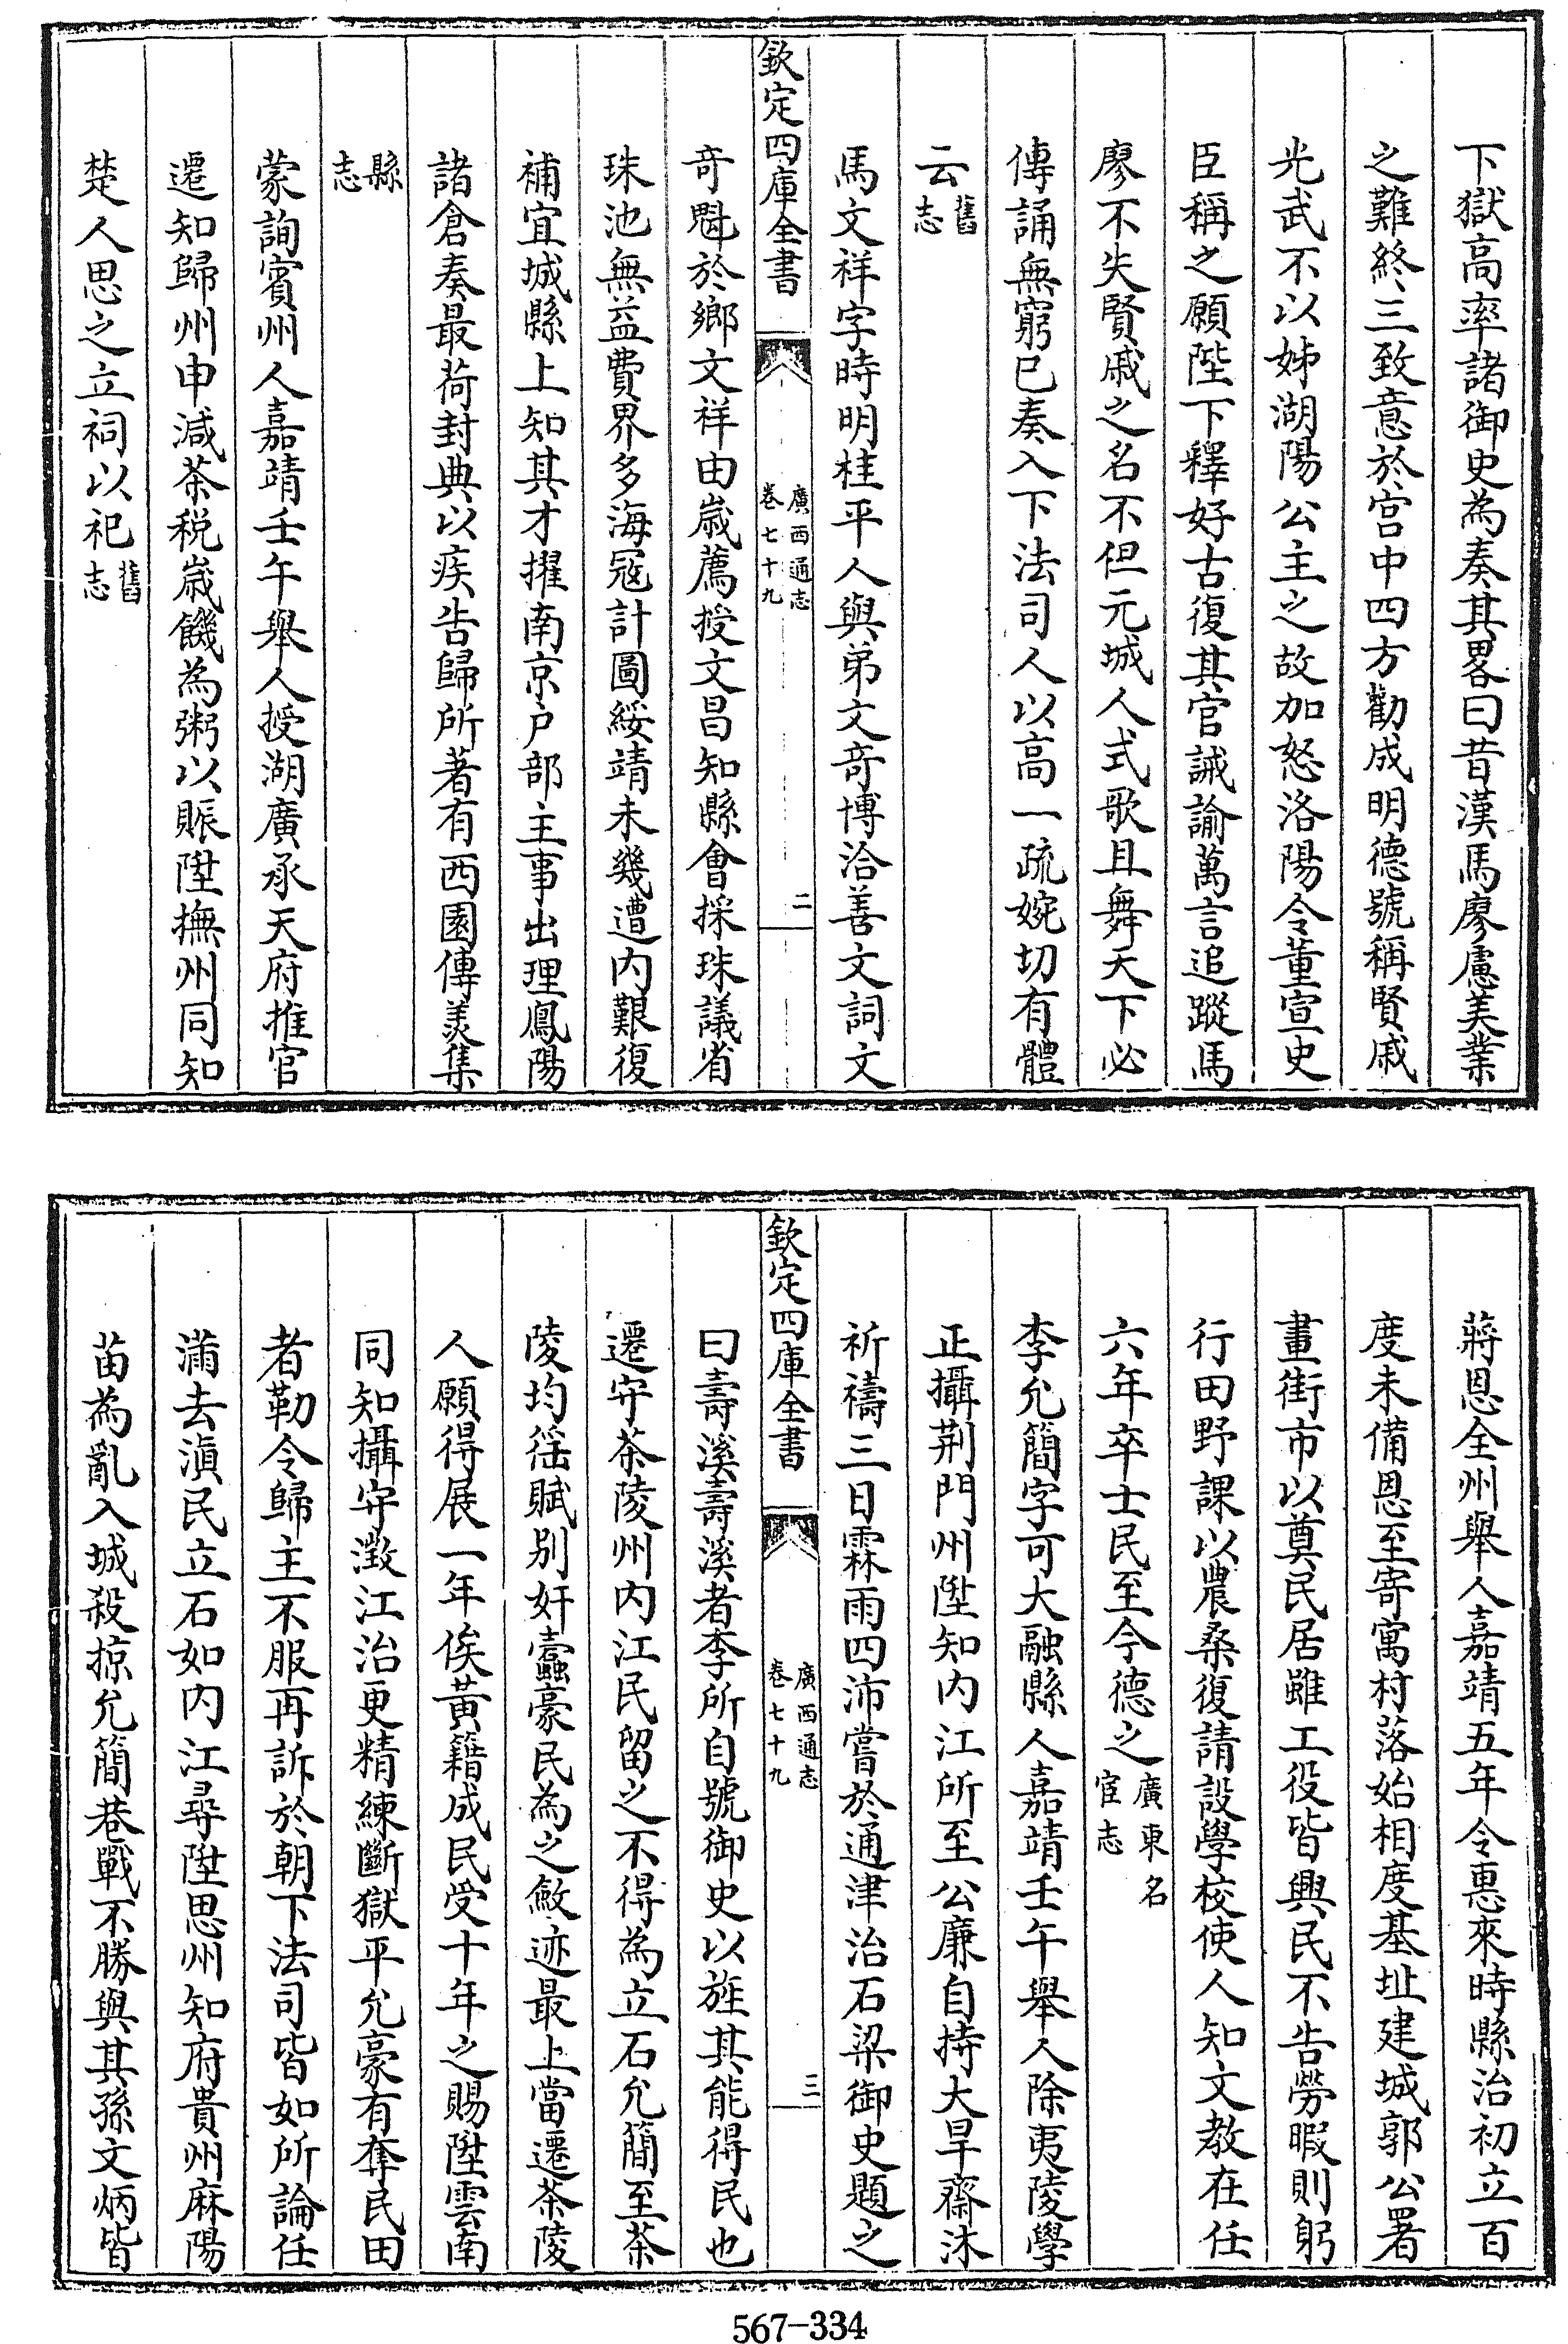 下獄高率諸御史為奏其畧曰昔漢馬廖慮美業
之難終三致意於宫中四方勸成明德號稱賢戚
光武不以姊湖陽公主之故加怒洛陽令董宣史
臣稱之願陛下釋好古復其官誡諭萬言追蹤馬
廖不失賢戚之名不但元城人式歌且舞天下必
傳誦無窮已奏入下法司人以高一疏婉切有體
云舊志
馬文祥字時明桂平人與弟文竒博洽善文詞文
欽定四庫全書
廣西通志
卷七十九
二
竒魁於鄉文祥由嵗薦授文昌知縣會採珠議省
珠池無益費界多海冦計圖綏靖未幾遭内艱復
補宜城縣上知其才擢南京户部主事出理鳳陽
諸倉奏最荷封典以疾告歸所著有西園傳羙集
縣志
蒙詢賓州人嘉靖壬午舉人授湖廣承天府推官
遷知歸州申減茶税嵗饑為粥以賑陞撫州同知
楚人思之立祠以祀舊志
蔣恩全州舉人嘉靖五年令惠來時縣治初立百
度未備恩至寄寓村落始相度基址建城郭公署
畫街市以奠民居雖工役皆興民不告勞暇則躬
行田野課以農桑復請設學校使人知文教在任
六年卒士民至今德之廣東名宦志
李允簡字可大融縣人嘉靖壬午舉人除夷陵學
正攝荆門州陞知内江所至公廉自持大旱齋沐
祈禱三日霖雨四沛嘗於通津治石梁御史題之
欽定四庫全書
廣西通志
卷七十九
三
曰壽溪壽溪者李所自號御史以旌其能得民也
遷守茶陵州内江民留之不得為立石允簡至茶
陵均徭賦别奸蠧豪民為之斂迹最上當遷茶陵
人願得展一年俟黄籍成民受十年之賜陞雲南
同知攝守澂江治更精練斷獄平允豪有奪民田
者勒令歸主不服再訴於朝下法司皆如所論任
滿去滇民立石如内江尋陞思州知府貴州麻陽
苗為亂入城殺掠允簡巷戰不勝與其孫文炳皆
567-334